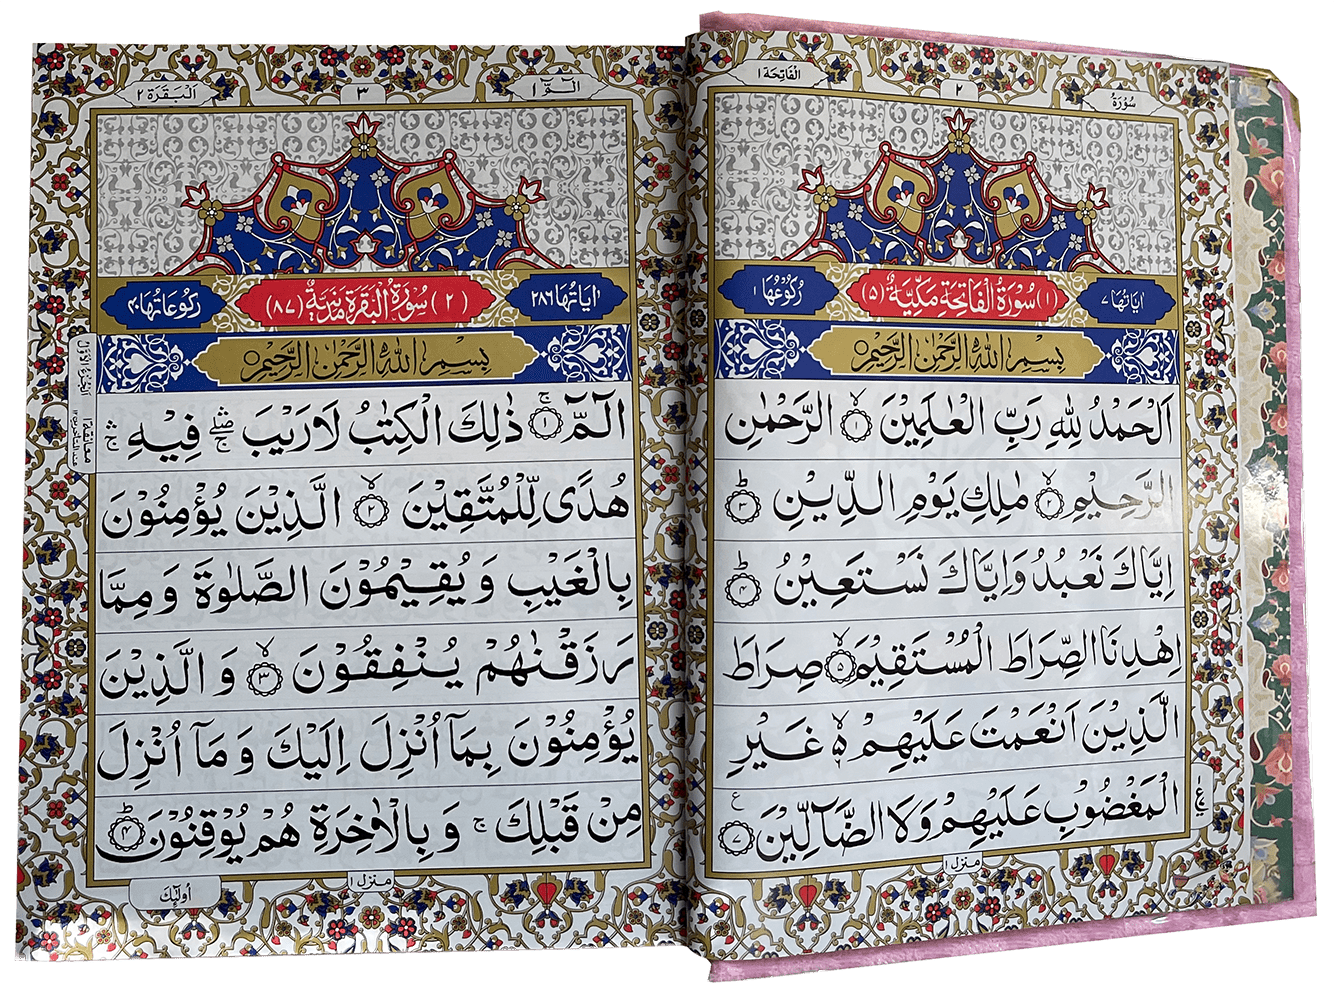 سُوْرَةُ
٢
اَلْفَاتِحَة ١
اٰيَاتُهَا ٧
(١) سُوْرَةُ الْفَاتِحَةِ مَكِّيَّةٌ (٥)
رُكُوْعُهَا ١
بِسْمِ اللّٰهِ الرَّحْمٰنِ الرَّحِيْمِ
اَلْحَمْدُ لِلّٰهِ رَبِّ الْعٰلَمِيْنَ ۙ﴿١﴾ الرَّحْمٰنِ
الرَّحِيْمِ ۙ﴿٢﴾ مٰلِكِ يَوْمِ الدِّيْنِ ؕ﴿٣﴾
اِيَّاكَ نَعْبُدُ وَاِيَّاكَ نَسْتَعِيْنُ ؕ﴿٤﴾
اِهْدِنَا الصِّرَاطَ الْمُسْتَقِيْمَ ۙ﴿٥﴾ صِرَاطَ
الَّذِيْنَ اَنْعَمْتَ عَلَيْهِمْ ۙ۬ۙ غَيْرِ
الْمَغْضُوْبِ عَلَيْهِمْ وَلَا الضَّآلِّيْنَ ﴿٧﴾ ع
منزل ١
الٓمّٓ ١
٣
اَلْبَقَرَة ٢
اٰيَاتُهَا ٢٨٦
(٢) سُوْرَةُ الْبَقَرَةِ مَدَنِيَّةٌ (٨٧)
رُكُوْعَاتُهَا ٤٠
بِسْمِ اللّٰهِ الرَّحْمٰنِ الرَّحِيْمِ
الٓمّٓ ۚ﴿١﴾ ذٰلِكَ الْكِتٰبُ لَا رَيْبَ ۛۖۚ فِيْهِ ۛۚ
هُدًى لِّلْمُتَّقِيْنَ ۙ﴿٢﴾ الَّذِيْنَ يُؤْمِنُوْنَ
بِالْغَيْبِ وَيُقِيْمُوْنَ الصَّلٰوةَ وَمِمَّا
رَزَقْنٰهُمْ يُنْفِقُوْنَ ۙ﴿٣﴾ وَالَّذِيْنَ
يُؤْمِنُوْنَ بِمَآ اُنْزِلَ اِلَيْكَ وَمَآ اُنْزِلَ
مِنْ قَبْلِكَ ۚ وَبِالْاٰخِرَةِ هُمْ يُوْقِنُوْنَ ؕ﴿٤﴾
منزل ١
اُولٰٓئِكَ
اَلْجُزْءُ الْاَوَّلُ ١
معانقة ١